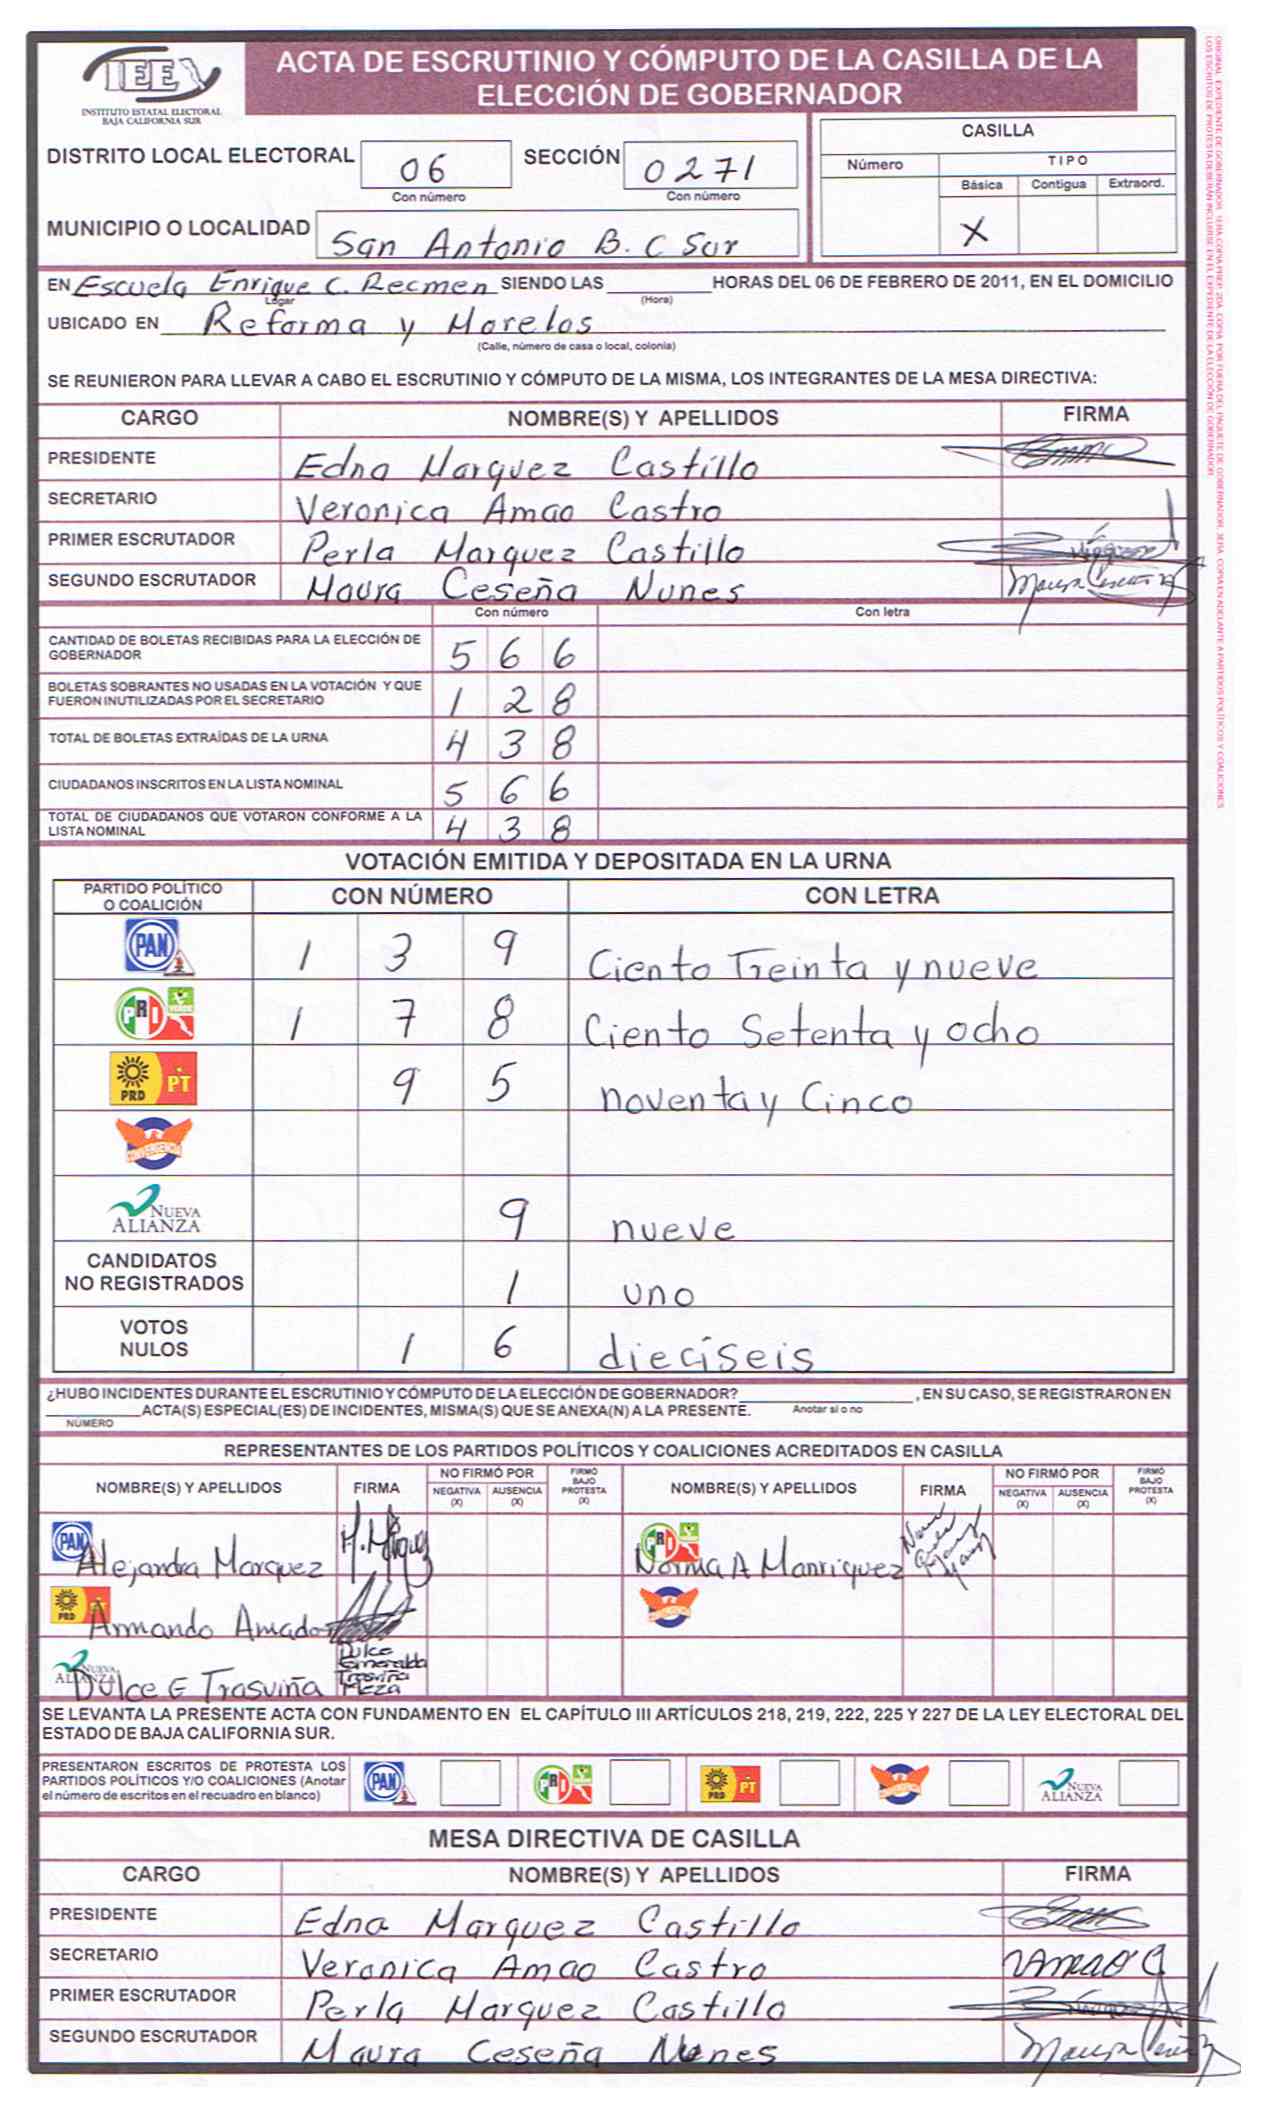 IEE
INSTITUTO ESTATAL ELECTORAL
BAJA CALIFORNIA SUR
ACTA DE ESCRUTINIO Y CÓMPUTO DE LA CASILLA DE LA
ELECCIÓN DE GOBERNADOR
DISTRITO LOCAL ELECTORAL 06 SECCIÓN 0271
Con número Con número
MUNICIPIO O LOCALIDAD San Antonio B. C Sur
CASILLA
Número TIPO
Básica Contigua Extraord.
X
EN Escuela Enrique C. Recmen SIENDO LAS HORAS DEL 06 DE FEBRERO DE 2011, EN EL DOMICILIO
Lugar (Hora)
UBICADO EN Reforma y Morelos
(Calle, número de casa o local, colonia)
SE REUNIERON PARA LLEVAR A CABO EL ESCRUTINIO Y CÓMPUTO DE LA MISMA, LOS INTEGRANTES DE LA MESA DIRECTIVA:
CARGO NOMBRE(S) Y APELLIDOS FIRMA
PRESIDENTE Edna Marquez Castillo
SECRETARIO Veronica Amao Castro
PRIMER ESCRUTADOR Perla Marquez Castillo
SEGUNDO ESCRUTADOR Maura Ceseña Nunes
Con número Con letra
CANTIDAD DE BOLETAS RECIBIDAS PARA LA ELECCIÓN DE
GOBERNADOR 5 6 6
BOLETAS SOBRANTES NO USADAS EN LA VOTACIÓN Y QUE
FUERON INUTILIZADAS POR EL SECRETARIO 1 2 8
TOTAL DE BOLETAS EXTRAÍDAS DE LA URNA 4 3 8
CIUDADANOS INSCRITOS EN LA LISTA NOMINAL 5 6 6
TOTAL DE CIUDADANOS QUE VOTARON CONFORME A LA
LISTA NOMINAL 4 3 8
VOTACIÓN EMITIDA Y DEPOSITADA EN LA URNA
PARTIDO POLÍTICO
O COALICIÓN CON NÚMERO CON LETRA
PAN 1 3 9 Ciento Treinta y nueve
PRI VERDE 1 7 8 Ciento Setenta y ocho
PRD PT 9 5 noventa y Cinco
CONVERGENCIA
NUEVA ALIANZA 9 nueve
CANDIDATOS
NO REGISTRADOS 1 uno
VOTOS
NULOS 1 6 dieciseis
¿HUBO INCIDENTES DURANTE EL ESCRUTINIO Y CÓMPUTO DE LA ELECCIÓN DE GOBERNADOR? , EN SU CASO, SE REGISTRARON EN
ACTA(S) ESPECIAL(ES) DE INCIDENTES, MISMA(S) QUE SE ANEXA(N) A LA PRESENTE. Anotar si o no
NÚMERO
REPRESENTANTES DE LOS PARTIDOS POLÍTICOS Y COALICIONES ACREDITADOS EN CASILLA
NOMBRE(S) Y APELLIDOS FIRMA NO FIRMÓ POR NEGATIVA (X) AUSENCIA (X) FIRMÓ BAJO PROTESTA (X) NOMBRE(S) Y APELLIDOS FIRMA NO FIRMÓ POR NEGATIVA (X) AUSENCIA (X) FIRMÓ BAJO PROTESTA (X)
PAN Alejandra Marquez PRI Norma A Manriquez
PRD PT Armando Amador CONVERGENCIA
NUEVA ALIANZA Dulce E Trasviña Dulce Esmeralda Trasviña Meza
SE LEVANTA LA PRESENTE ACTA CON FUNDAMENTO EN EL CAPÍTULO III ARTÍCULOS 218, 219, 222, 225 Y 227 DE LA LEY ELECTORAL DEL
ESTADO DE BAJA CALIFORNIA SUR.
PRESENTARON ESCRITOS DE PROTESTA LOS
PARTIDOS POLÍTICOS Y/O COALICIONES (Anotar
el número de escritos en el recuadro en blanco)
PAN PRI PRD PT CONVERGENCIA NUEVA ALIANZA
MESA DIRECTIVA DE CASILLA
CARGO NOMBRE(S) Y APELLIDOS FIRMA
PRESIDENTE Edna Marquez Castillo
SECRETARIO Veronica Amao Castro VAmao C
PRIMER ESCRUTADOR Perla Marquez Castillo
SEGUNDO ESCRUTADOR Maura Ceseña Nunes